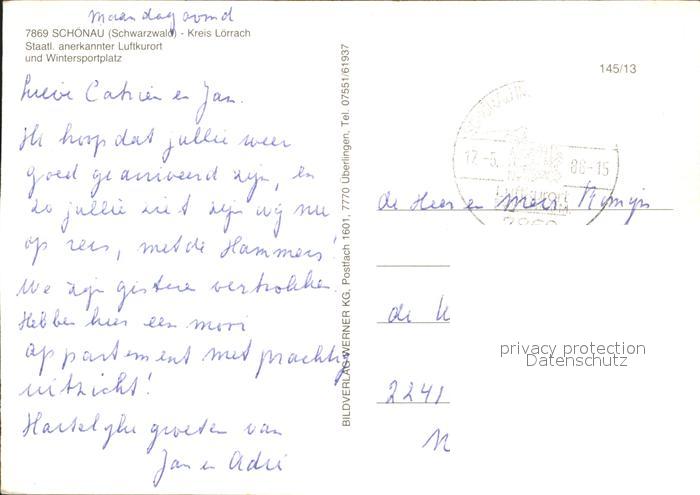 Maandagavond
7869 SCHÖNAU (Schwarzwald) - Kreis Lörrach
Staatl. anerkannter Luftkurort
und Wintersportplatz
Lieve Catrien en Jan.
Ik hoop dat jullie weer
goed gearriveerd zijn, en
zo jullie ziet zijn wij nu
op reis, met de Hammers!
We zijn gisteren vertrokken.
Hebben hier een mooi
appartement met prachtig
uitzicht!
Hartelijke groeten van
Jan en Adri
BILDVERLAG WERNER KG, Postfach 1601, 7770 Überlingen, Tel. 07551/61937
145/13
12.-5. 86-15
Luftkurort
7869
de Heer en Mevr.
de K
2241
privacy protection
Datenschutz